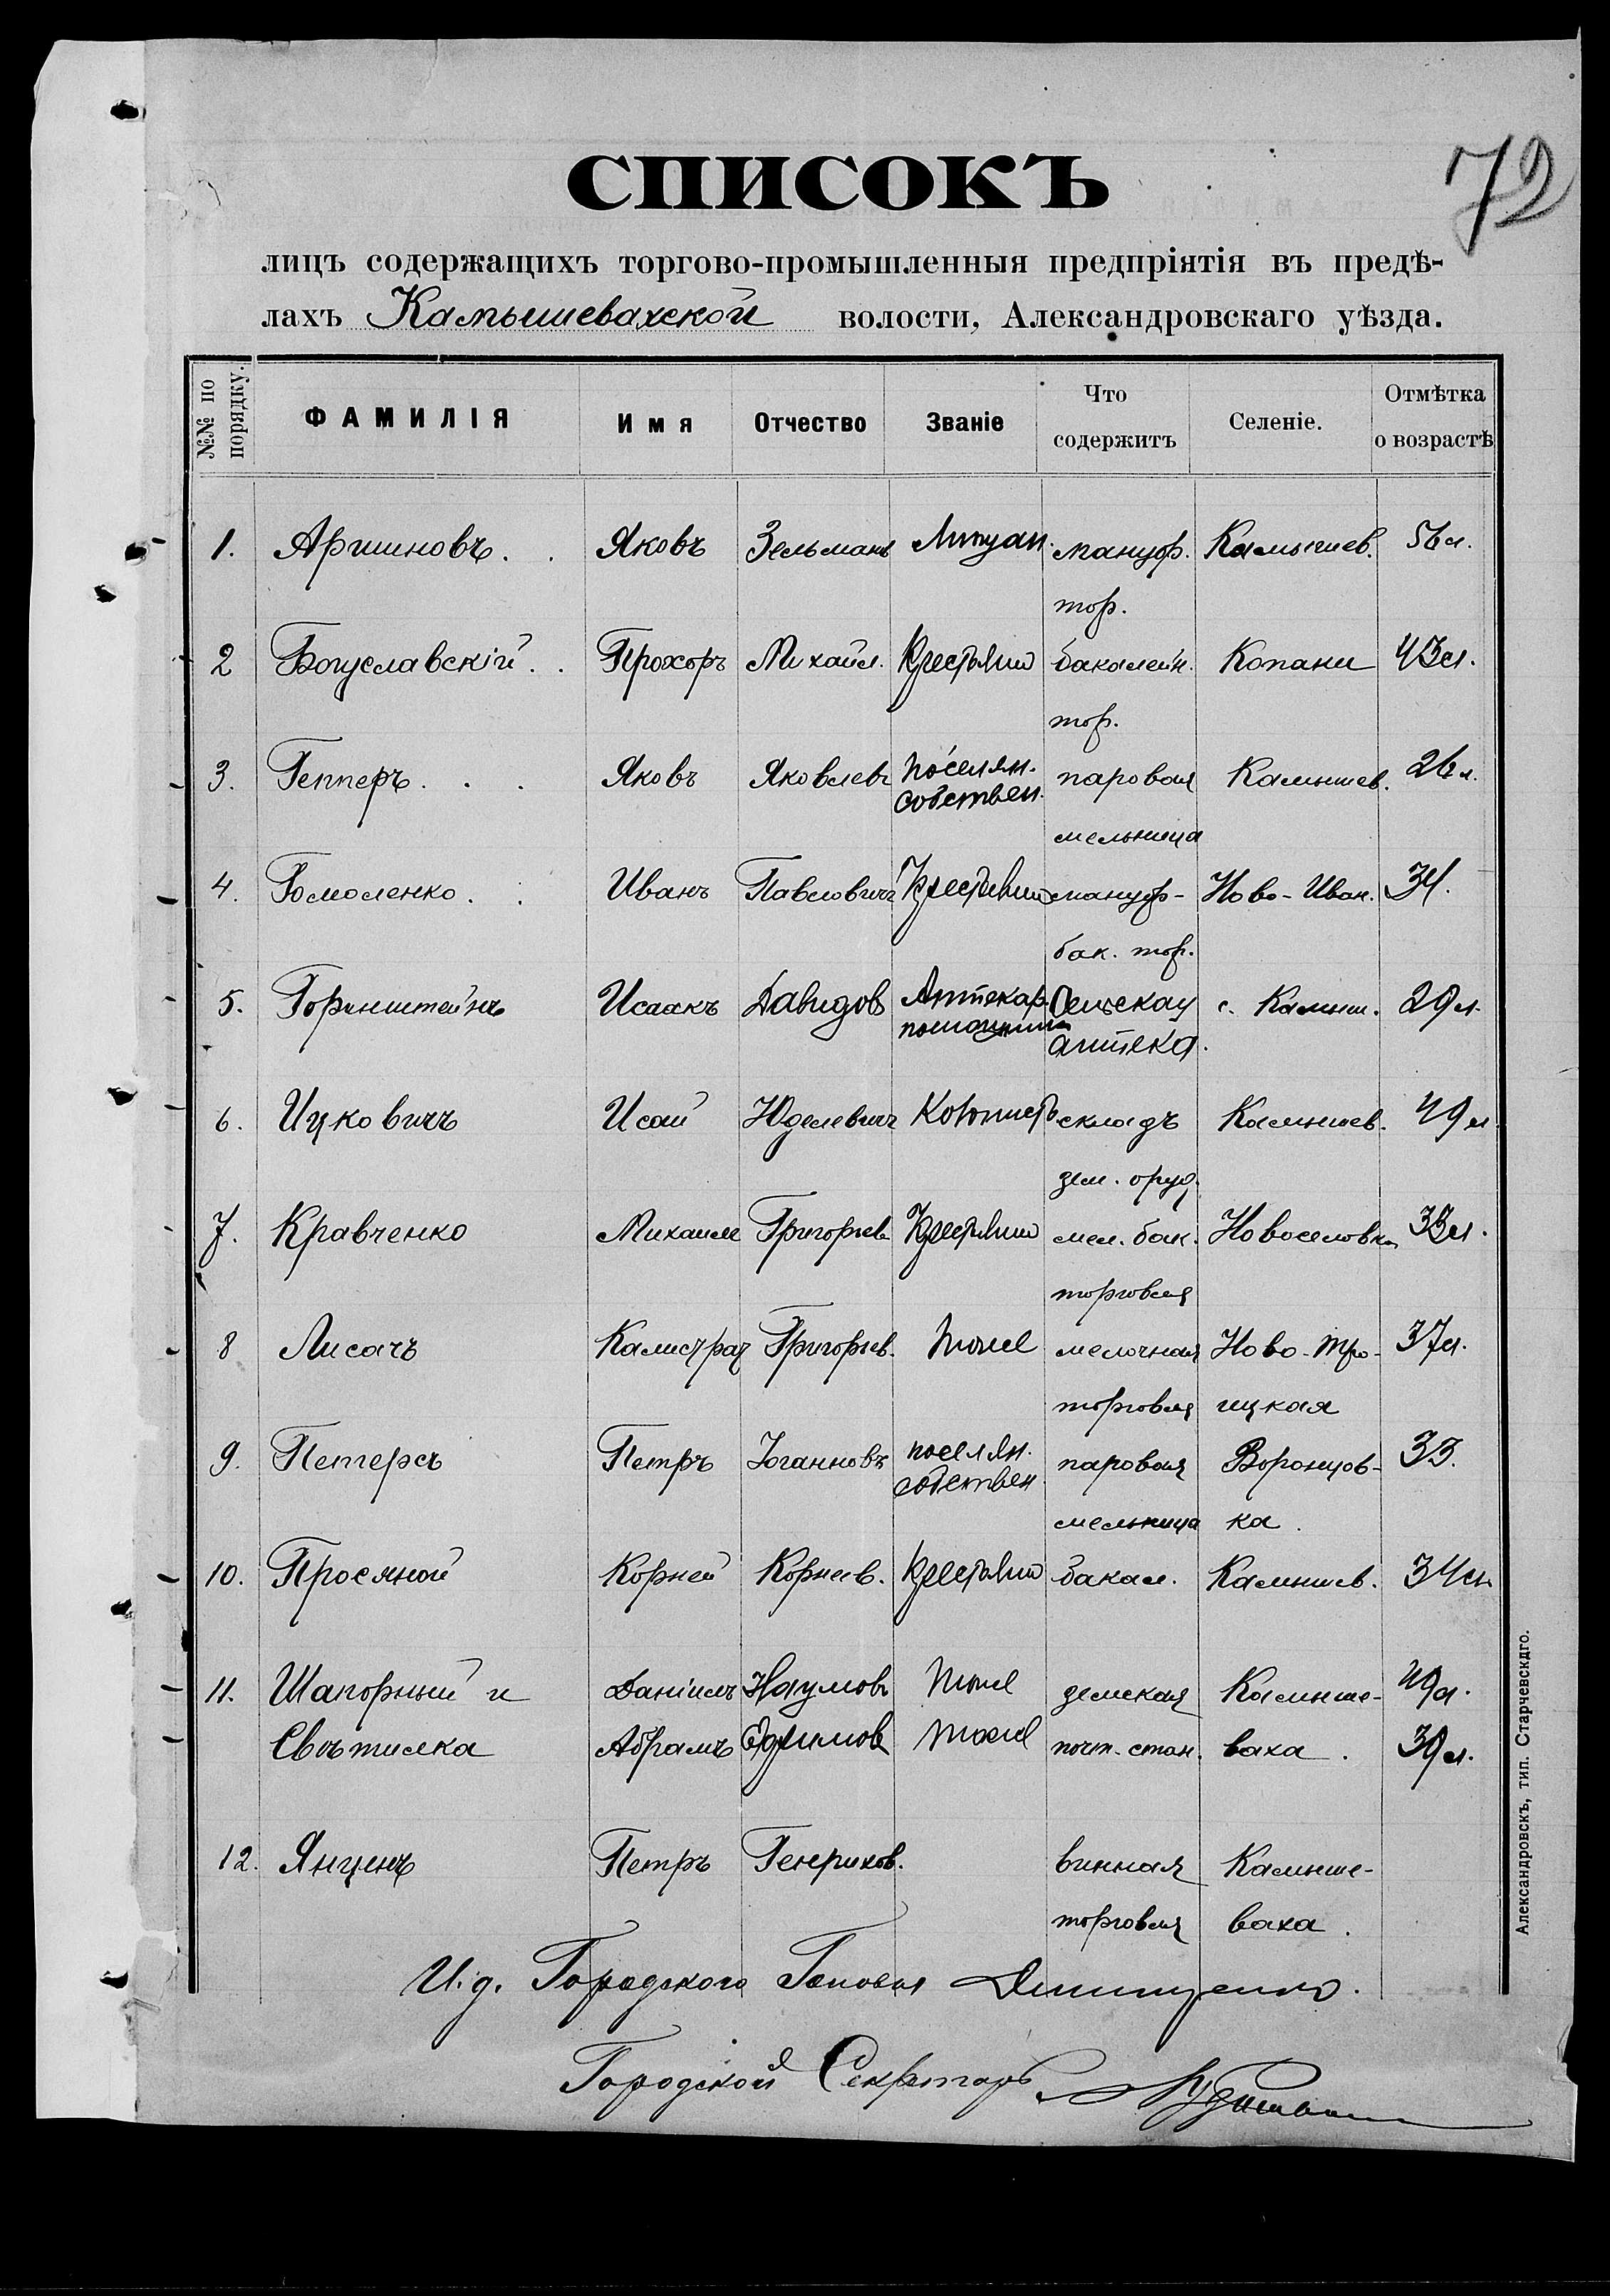 72
СПИСОКЪ
лицъ содержащихъ торгово-промышленныя предпріятія въ предѣ-
лахъ Камышевахской волости, Александровскаго уѣзда.
№№ по порядку. ФАМИЛІЯ Имя Отчество Званіе Что содержитъ Селеніе. Отмѣтка о возрастѣ
1. Аршиновъ . . Яковъ Зельмань мануф. Камышев. 56 л.
тор.
2 Богуславскій . . Прохоръ Михайл. Крестьянин бакалейн. Копани 43 л.
тор.
3. Гепперъ . . . Яковъ Яковлевъ поселян. паровая Камышев. 26 л.
собствен. мельница
4. Гомоленко . . Иванъ Павловичъ Крестьянин мануф- Ново-Иван. 34.
бак. тор.
5. Горинштейнъ Исаакъ Давидов Аптекар. Сельская с. Камыш. 29 л.
помощник аптека.
6. Ицковичъ Исай Юделевичъ Колонистъ складъ Камышев. 49 л
зем. оруд.
7. Кравченко Михаилъ Григорьев Крестьянин мел. бак. Новоселовка 33 л.
торговля
8 Лисачъ Калистрат Григорьев. тоже мелочная Ново-Тро- 37 л.
торговля ицкая
9. Петерсъ Петръ Іоганновъ поселян. паровая Воронцов- 33.
собствен. мельница ка.
10. Просяной Корней Корнеев. Крестьянин бакал. Камышев. 34 л.
11. Шапорный и Даніилъ Наумовъ тоже земская Камыше- 49 л.
Свѣтилка Абрамъ Ефимов тоже почт. стан. ваха. 39 л.
12. Янценъ Петръ Генрихов. винная Камыше-
торговля ваха.
И. д. Городского Головы
Городской Секретарь
Александровскъ, тип. Старчевскаго.